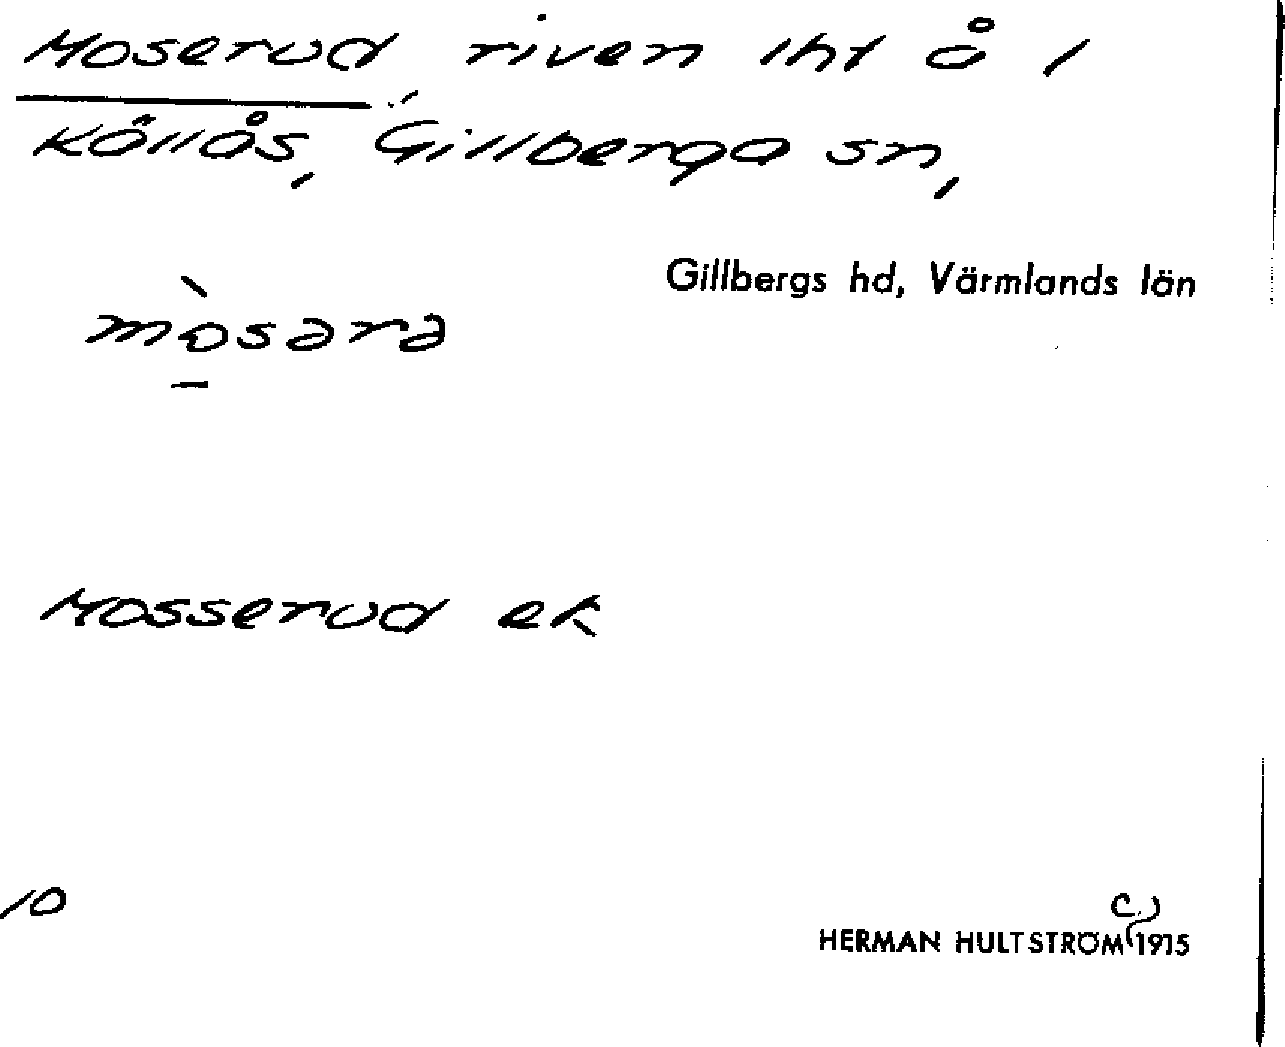 Moserud riven lht å 1
Källås, Gillberga sn,
Gillbergs hd, Värmlands län
mòsərə
Mosserud ek
10
c.)
HERMAN HULTSTRÖM 1975